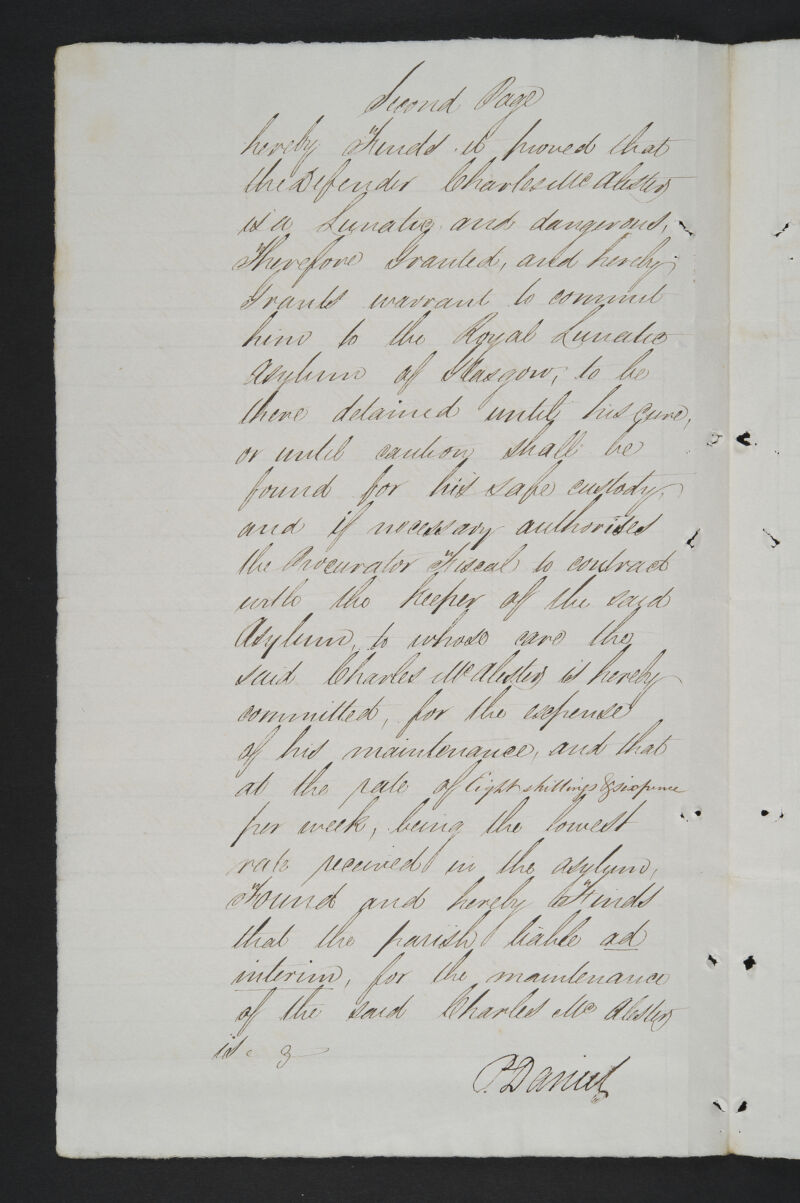 Second Page
hereby Finds it proved that
the Defender Charles McAlester
is a Lunatic and dangerous,
Therefore Granted, and hereby
Grants warrant to commit
him to the Royal Lunatic
Asylum of Glasgow, to be
there detained until his Cure,
or until caution shall be
found for his safe custody,
and if necessary authorises
the Procurator Fiscal to contract
with the Keeper of the said
Asylum, to whose care the
said Charles McAlester is hereby
committed, for the expense
of his maintenance, and that
at the rate of Eight shillings & sixpence
per week, being the lowest
rate received in the asylum,
Found and hereby Finds
that the parish liable ad
interim, for the maintenance
of the said Charles McAlester
is
P. Daniel